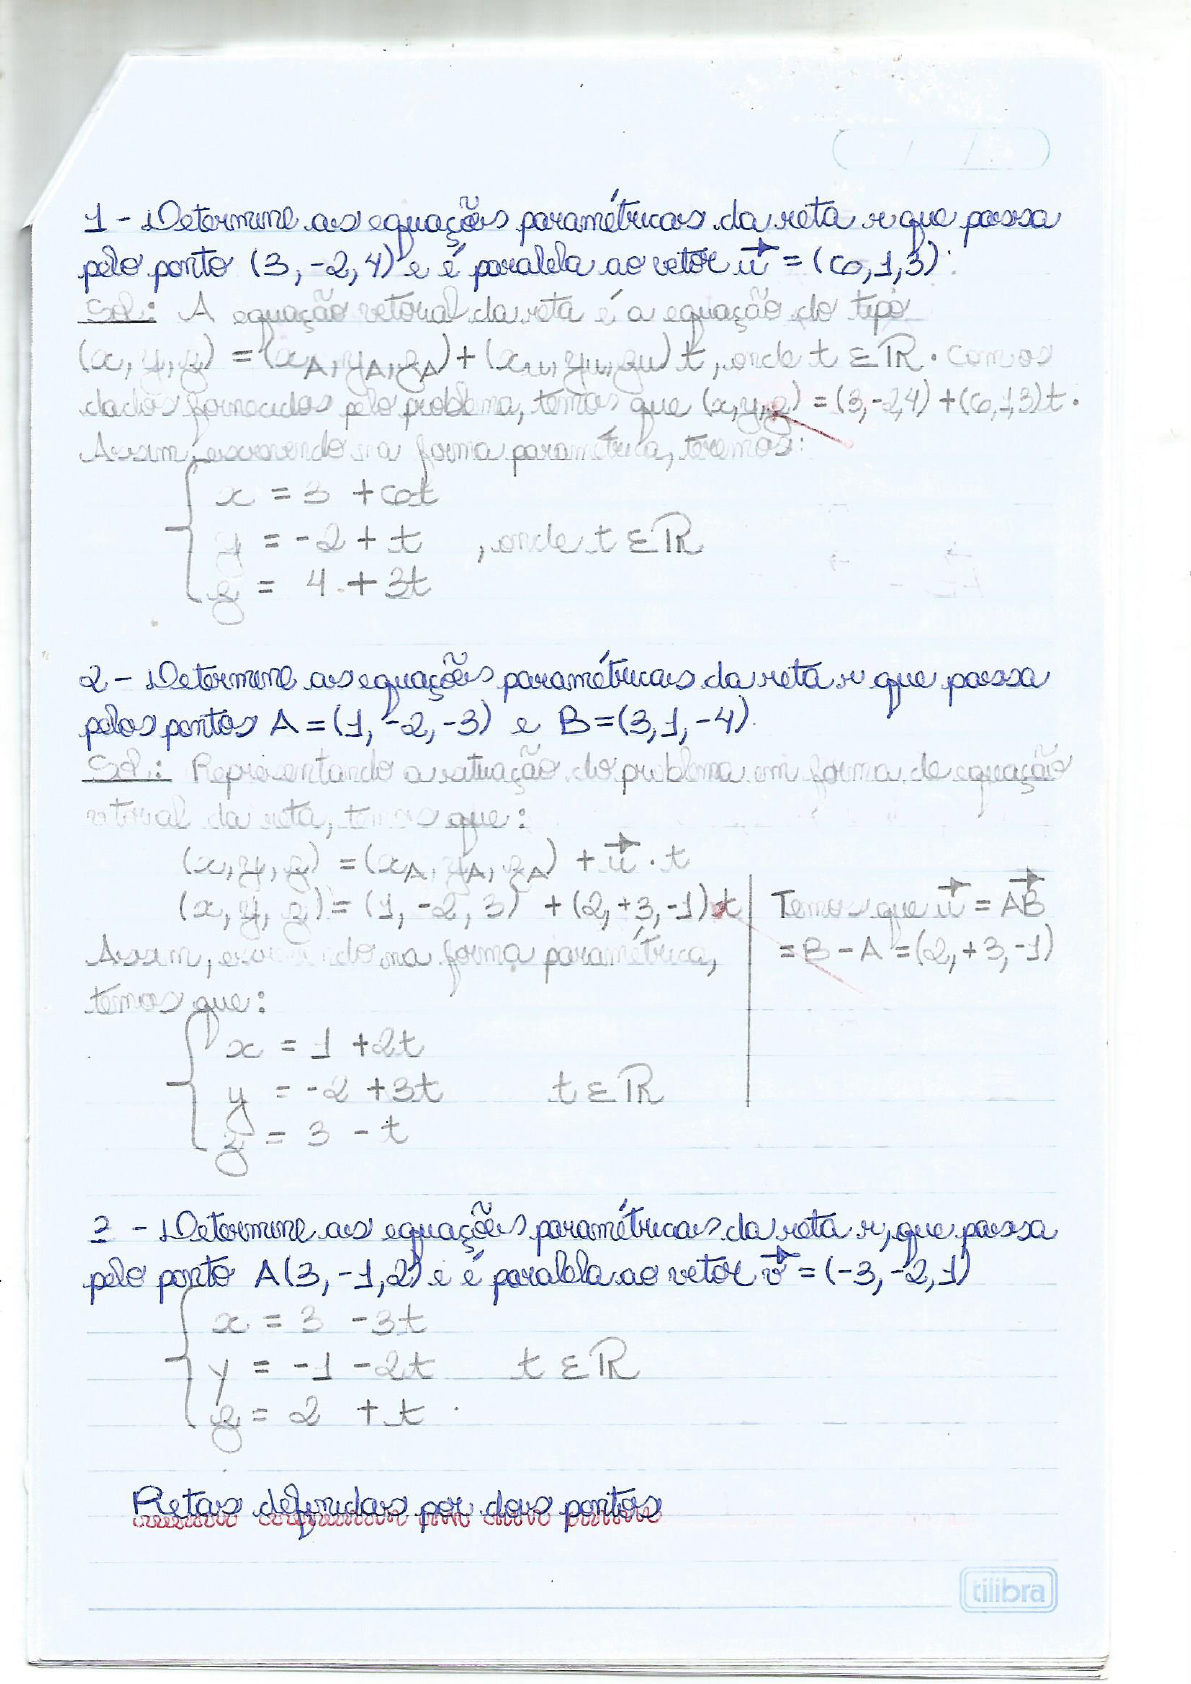 1 - Determine as equações paramétricas da reta r que passa
pelo ponto (3, -2, 4) e é paralela ao vetor u⃗ = (6, 1, 3).
Sol.: A equação vetorial da reta é a equação do tipo
(x, y, z) = (xA, yA, zA) + (xu, yu, zu) t, onde t ∈ ℝ. Com os
dados fornecidos pelo problema, temos que (x,y,z) = (3,-2,4) + (6,1,3)t.
Assim, escrevendo na forma paramétrica, teremos:
x = 3 + 6t
y = -2 + t , onde t ∈ ℝ
z = 4 + 3t
2 - Determine as equações paramétricas da reta r que passa
pelos pontos A = (1, -2, -3) e B = (3, 1, -4).
Sol.: Representando a situação do problema em forma de equação
vetorial da reta, temos que:
(x, y, z) = (xA, yA, zA) + u⃗ . t
(x, y, z) = (1, -2, 3) + (2, +3, -1) t
Temos que u⃗ = AB⃗
= B - A = (2, +3, -1)
Assim, escrevendo na forma paramétrica,
temos que:
x = 1 + 2t
y = -2 + 3t t ∈ ℝ
z = 3 - t
3 - Determine as equações paramétricas da reta r, que passa
pelo ponto A(3, -1, 2) e é paralela ao vetor v⃗ = (-3, -2, 1)
x = 3 - 3t
y = -1 - 2t t ∈ ℝ
z = 2 + t
Retas definidas por dois pontos
tilibra